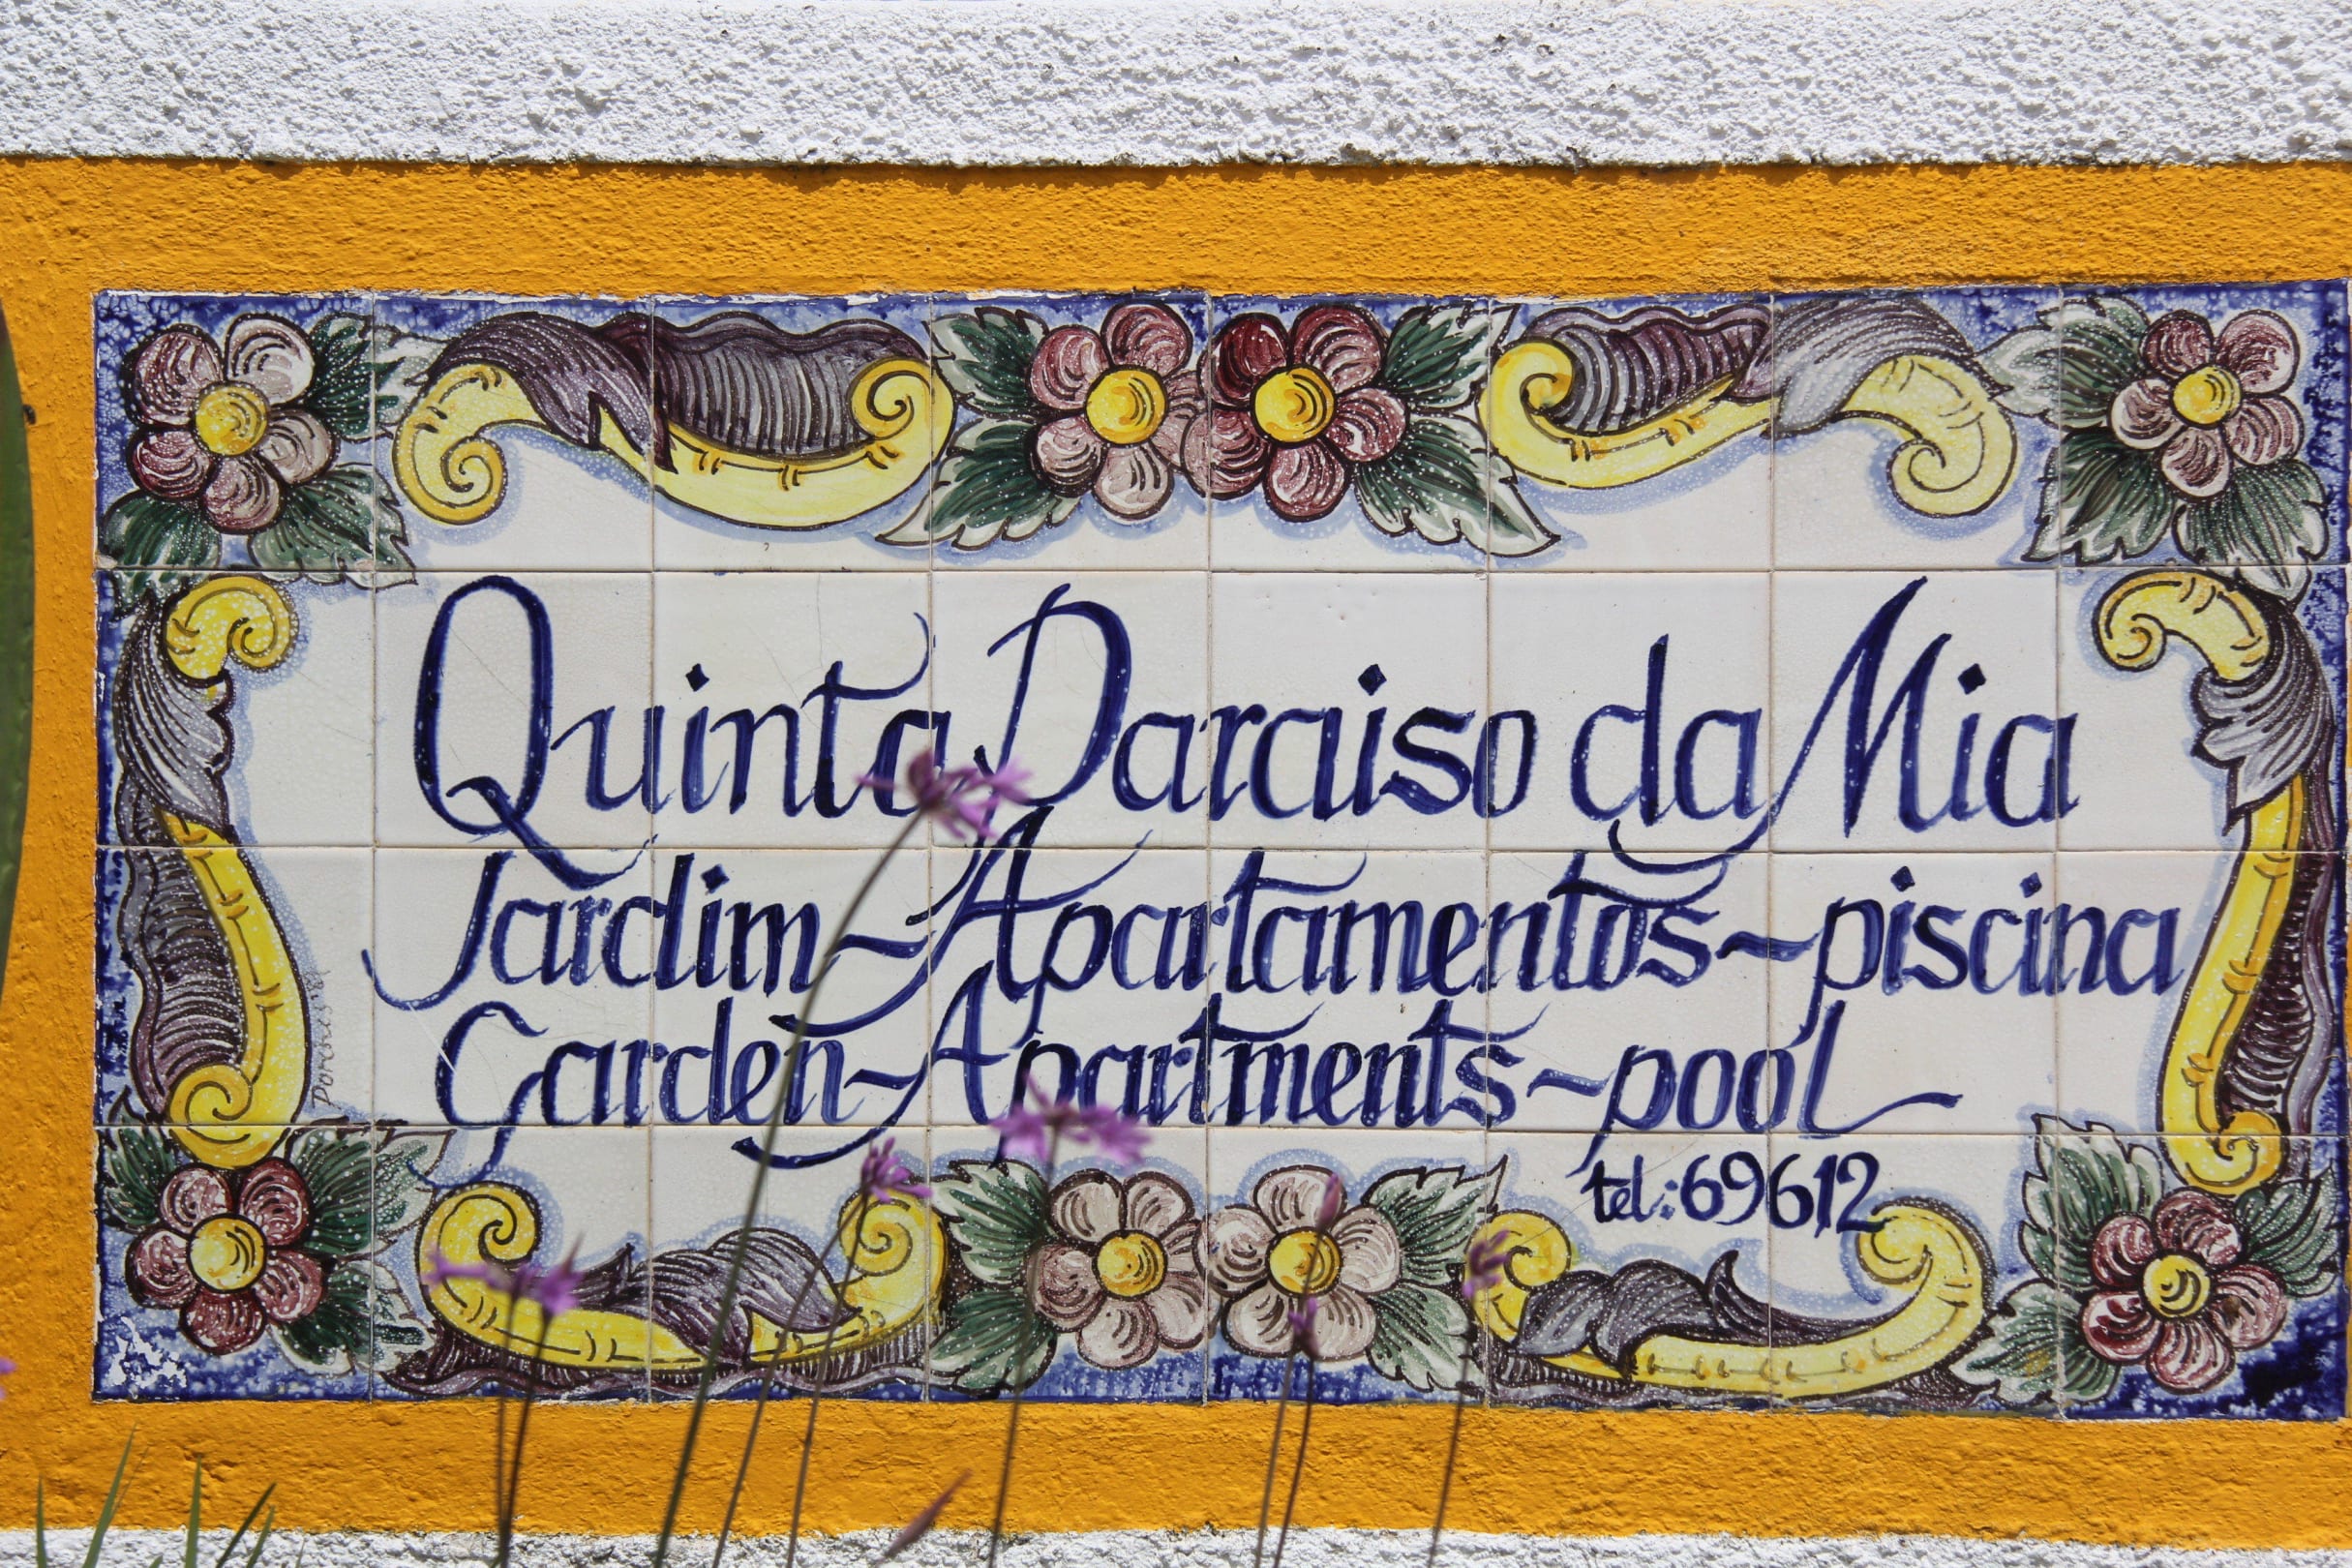 Quinta Paraiso da Mia
Jardim ~ Apartamentos ~ piscina
Garden ~ Apartments ~ pool
tel.: 69612